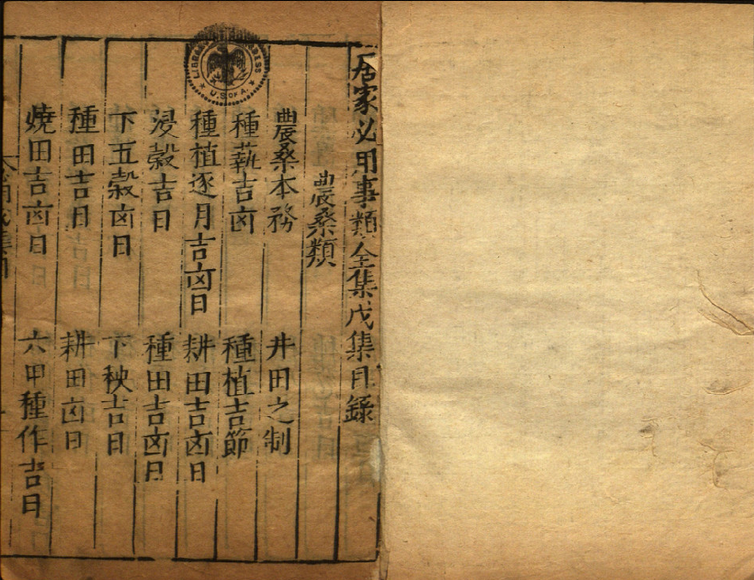 居家必用事類全集戊集目錄
農桑類
農桑本務 井田之制
種蓺吉凶 種植吉節
種植逐月吉凶日 耕田吉凶日
浸穀吉日 種田吉凶日
下五穀凶日 下秧吉日
種田吉日 耕田凶日
燒田吉凶日 六甲種作吉日
LIBRARY OF CONGRESS
U.S. OF A.